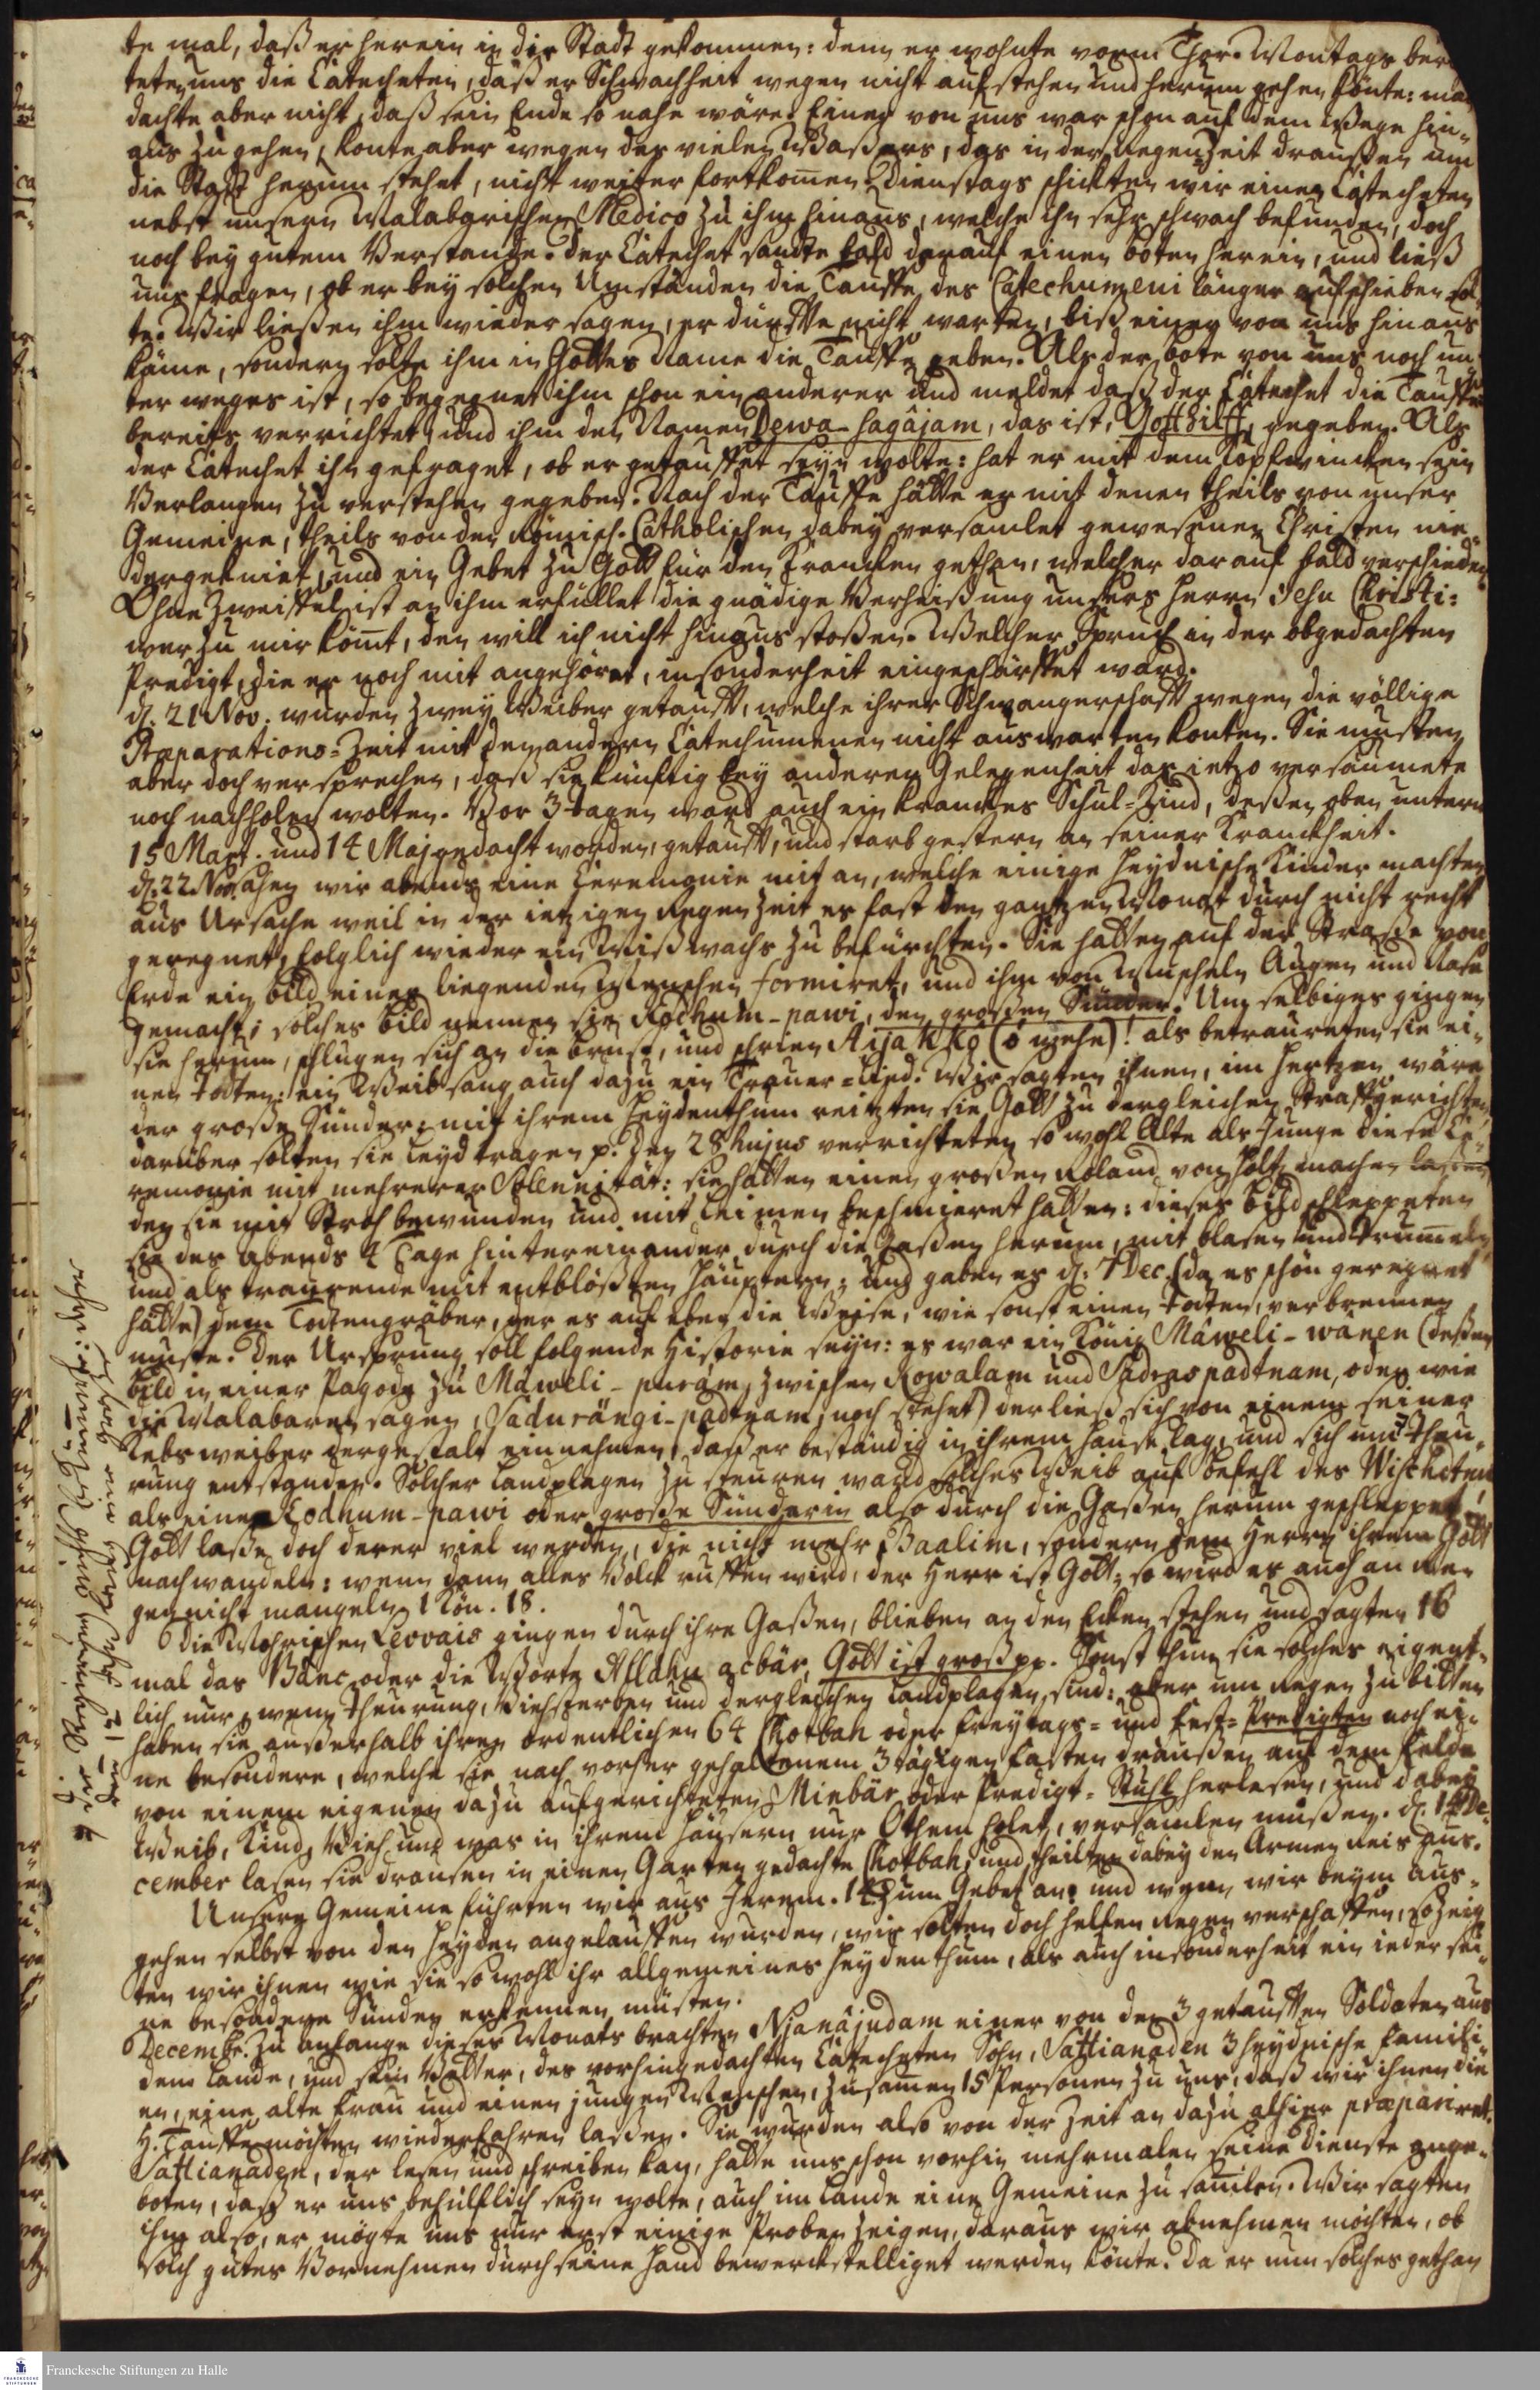 te mal, daß er herein in die Stadt gekommen: denn er wohnte vorm Thor. Montags ber
teten uns die Catecheten, daß er Schwachheit wegen nicht aufstehen und herum gehen könte: man
dachte aber nicht, daß sein Ende so nahe wäre. Einer von uns war schon auf dem Wege hin-
aus zu gehen, konte aber wegen des vielen Waßers, das in der Regenzeit draußen um
die Stadt herum stehet, nicht weiter fortkom̄en. Dienstags schickten wir einen Catecheten
nebst unsern Malabarischen Medico zu ihm hinaus, welche ihn sehr schwach befunden, doch
noch bey gutem Verstande. Der Catechet sandte bald darauf einen boten herein, und ließ
uns fragen, ob er bey solchen Umständen die Tauffe des Catechumeni länger aufschieben sol-
te. Wir ließen ihm wieder sagen, er dürffte nicht warten, biß einer von uns hinaus
käme, sondern solte ihm in Gottes Name die Tauffe geben. Als der bote von uns noch un-
ter weges ist, so begegnet ihm schon ein anderer und meldet daß der Catechet die Tauffe
bereits verrichtet und ihm den Namen Dewa-sagâjam, das ist, Gotthilff, gegeben. Als
der Catechet ihn gefraget, ob er getauffet seyn wolte: hat er mit dem Kopfwincken sein
Verlangen zu verstehen gegeben. Nach der Tauffe hätte er mit denen theils von unser
Gemeine, theils von der Römisch-Catholischen dabey versamlet gewesenen Christen nie-
dergekniet, und ein Gebet zu Gott für den Krancken gethan, welcher darauf bald verschieden.
Ohne Zweiffel ist an ihm erfüllet die gnädige Verheißung unsers Herrn Jesu Christi:
wer zu mir köm̄t, den will ich nicht hinaus stoßen. Welcher Spruch in der obgedachten
Predigt, die er noch mit angehöret, insonderheit eingeschärffet ward.
d. 21 Nov. wurden zwey Weiber getaufft, welche ihrer Schwangerschafft wegen die völlige
Præparations-Zeit mit den andern Catechumenen nicht auswarten konten. Sie musten
aber doch versprechen, daß sie künftig bey anderer Gelegenheit das ietzo versäumete
noch nachholen wolten. Vor 3 tagen ward auch ein kranckes Schul-Kind, deßen oben unterm
15 Mart. und 14 Maj gedacht worden, getaufft, und starb gestern an seiner Kranckheit.
d. 22 Nov. sahen wir abends eine Ceremonie mit an, welche einige Heydnische Kinder machten
aus Ursache weil in der ietzigen Regenzeit es fast den gantzen Monat durch nicht recht
geregnet, folglich wieder ein Mißwachs zu befürchten. Sie hatten auf der Straße von
Erde ein bild eines liegenden Menschen formiret, und ihm von Muscheln Augen und Nase
gemacht; solches bild nennen sie Kodhum-pawi, den großen Sünder. Um selbiges gingen
sie herum, schlugen sich an die brust, und schrien Aijakkô (ô wehe)! als betraureten sie ei-
nen todten: ein Weib sang auch dazu ein Trauer-Lied. Wir sagten ihnen, im Hertzen wäre
der große Sünder; mit ihrem Heydenthum reitzten sie Gott zu dergleichen Straffgerichten,
darüber solten sie Leyd tragen p. Den 28 hujus verrichteten so wohl Alte als Junge diese Ce-
remonie mit mehrerer Solennität: sie hatten einen großen Roland von Holtz machen laßen,
den sie mit Stroh bewunden und mit Leimen beschmieret hatten: dieses bild schleppeten
sie des abends 4 Tage hintereinander durch die Gaßen herum, mit blasen und trum̄eln,
und als traurende mit entblößten Häuptern; und gaben es d. 7 Dec. (da es schön geregnet
hatte) dem Todtengräber, der es auf eben die Weise, wie sonst einen todten, verbrennen
muste. Der Ursprung soll folgende Historie seyn: es war ein König Mâweli-wánen (deßen
bild in einer Pagode zu Mâweli-puram, zwischen Kowalam und Sadraspadtnam, oder wie
die Malabaren sagen, Sadurângi-padtnam, noch stehet) der ließ sich von einem seiner
Kebsweiber dergestalt einnehmen, daß er beständig in ihrem Hause lag, und sich um
rung entstanden. Solcher Landplagen zu steuren ward solches Weib auf befehl des
als eine Kodhum-pawi oder große Sünderin also durch die Gaßen herum geschleppet.
Gott laße doch derer viel werden, die nicht mehr Baalim, sondern dem Herrn ihrem Gott
nachwandeln: wenn dann alles Volck ruffen wird, der Herr ist Gott; so wird es auch an Re-
gen nicht mangeln 1 Kön. 18.
Die Mohrischen Levvais gingen durch ihre Gaßen, blieben an den Ecken stehen und sagten 16
mal das Bânc oder die Worte Allahu acbàr, Gott ist groß pp. Sonst thun sie solches eigent-
lich nur, wenn Theurung, Viehsterben und dergleichen Landplagen sind: aber um Regen zu bitten
haben sie außerhalb ihren ordentlichen 64 Chotbah oder Freytags- und Fest-Predigten noch ei-
ne besondere, welche sie nach vorher gehaltenem 3tägigen Fasten draußen auf dem Felde
von einem eigenen dazu aufgerichteten Minbàr oder Predigt-Stuhl herlesen, und dabey
Weib, Kind, Vieh und was in ihrem Häusern nur Othem holet, versamlen müßen. d. 14 De-
cember lasen sie drausen in einen Garten gedachte Chotbah, und theilten dabey den Armen Reis aus.
Unsere Gemeine führten wir aus Jerem. 14 zum Gebet an: und wenn wir beym aus-
gehen selbst von den Heyden angelauffen wurden, wir solten doch helfen Regen verschaffen, so zeig-
ten wir ihnen wie sie so wohl ihr allgemeines Heydenthum, als auch insonderheit ein ieder sei-
ne besondere Sünden erkennen müsten.
Decembr. Zu anfange dieses Monats brachten Njanâjudam einer von den 3 getaufften Soldaten aus
dem Lande, und sein Vetter, des vorhingedachten Catecheten Sohn, Sattianaden 3 heydnische Famili-
en, eine alte Frau und einen jungen Menschen, zusam̄en 15 Personen zu uns, daß wir ihnen die
H. Tauffe möchten wiederfahren laßen. Sie wurden also von der Zeit an dazu alhier præpariret.
Sattianaden, der lesen und schreiben kan, hatte uns schon vorhin mehrmalen seine Dienste ange-
boten, daß er uns behülflich seyn wolte, auch im Lande eine Gemeine zu sam̄len. Wir sagten
ihm also, er mögte uns nur erst einige Proben zeigen, daraus wir abnehmen möchten, ob
solch gutes Vornehmen durch seine Hand bewerckstelliget werden könte. Da er nun solches gethan
Franckesche Stiftungen zu Halle